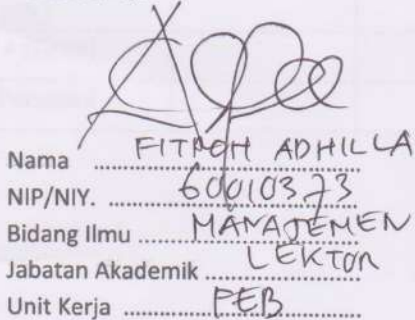 Nama FITROH ADHILLA
NIP/NIY. 60010373
Bidang Ilmu MANAJEMEN
Jabatan Akademik LEKTOR
Unit Kerja FEB